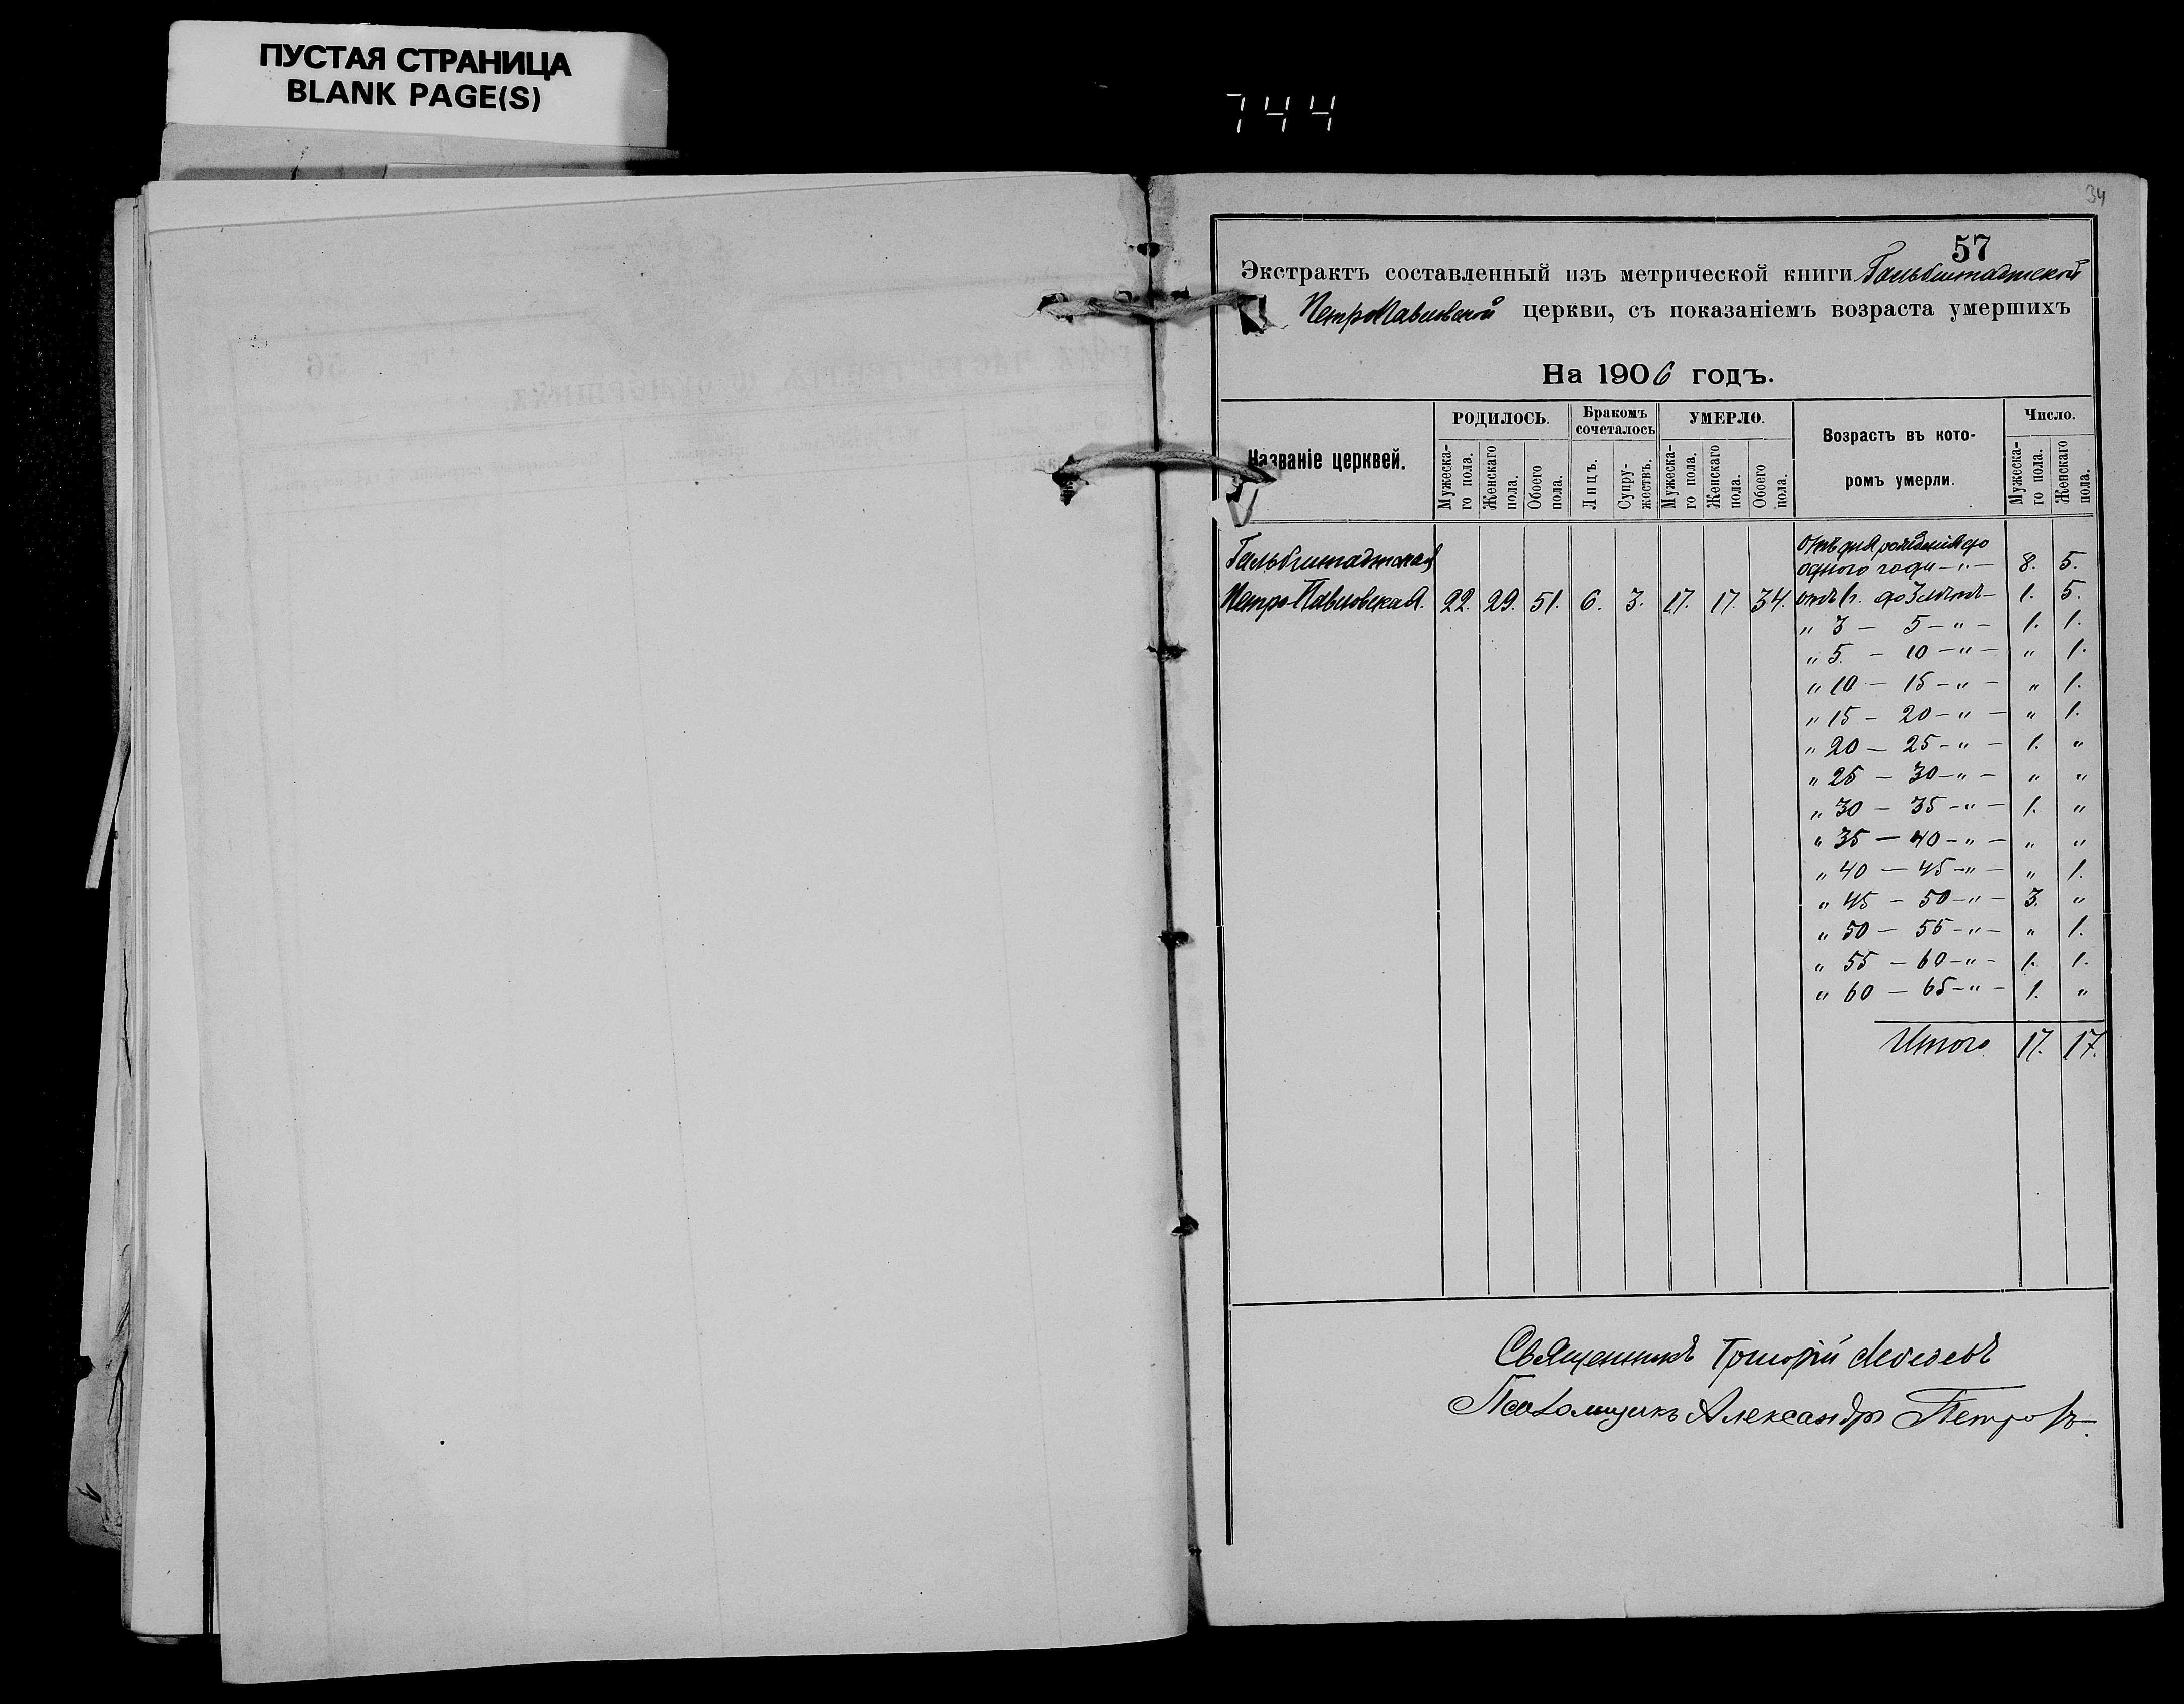 ПУСТАЯ СТРАНИЦА
BLANK PAGE(S)
744
34
57
Экстрактъ составленный изъ метрической книги Гальбштадтской
Петропавловской церкви, съ показаніемъ возраста умершихъ
На 1906 годъ.
Названіе церквей. РОДИЛОСЬ. Бракомъ сочеталось УМЕРЛО. Возрастъ въ которомъ умерли. Число.
Мужеска-го пола. Женскаго пола. Обоего пола. Лицъ. Супру-жествъ. Мужеска-го пола. Женскаго пола. Обоего пола. Мужеска-го пола. Женскаго пола.
Гальбштадтская
Отъ дня рожденія до
одного года — " — 8. 5.
Петро-Павловская. 22. 29. 51. 6. 3. 17. 17. 34. отъ 1 г. до 3 лѣтъ — 1. 5.
" 3 — 5 — " — 1. 1.
" 5. — 10 — " — " 1.
" 10 — 15 — " — " 1.
" 15 — 20 — " — " 1.
" 20 — 25 — " — 1. "
" 25 — 30 — " — " "
" 30 — 35 — " — 1. "
" 35 — 40 — " — " "
" 40 — 45 — " — " 1.
" 45 — 50 — " — 3. "
" 50 — 55 — " — " 1.
" 55 — 60 — " — 1. 1.
" 60 — 65 — " — 1. "
Итого 17. 17.
Священникъ Григорій Лебедевъ
Псаломщикъ Александръ Петровъ.